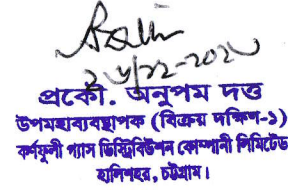 ২৮/১২-২০২০
প্রকৌ. অনুপম দত্ত
উপমহাব্যবস্থাপক (বিক্রয় দক্ষিণ-১)
কর্ণফুলী গ্যাস ডিস্ট্রিবিউশন কোম্পানী লিমিটেড
হালিশহর, চট্টগ্রাম।